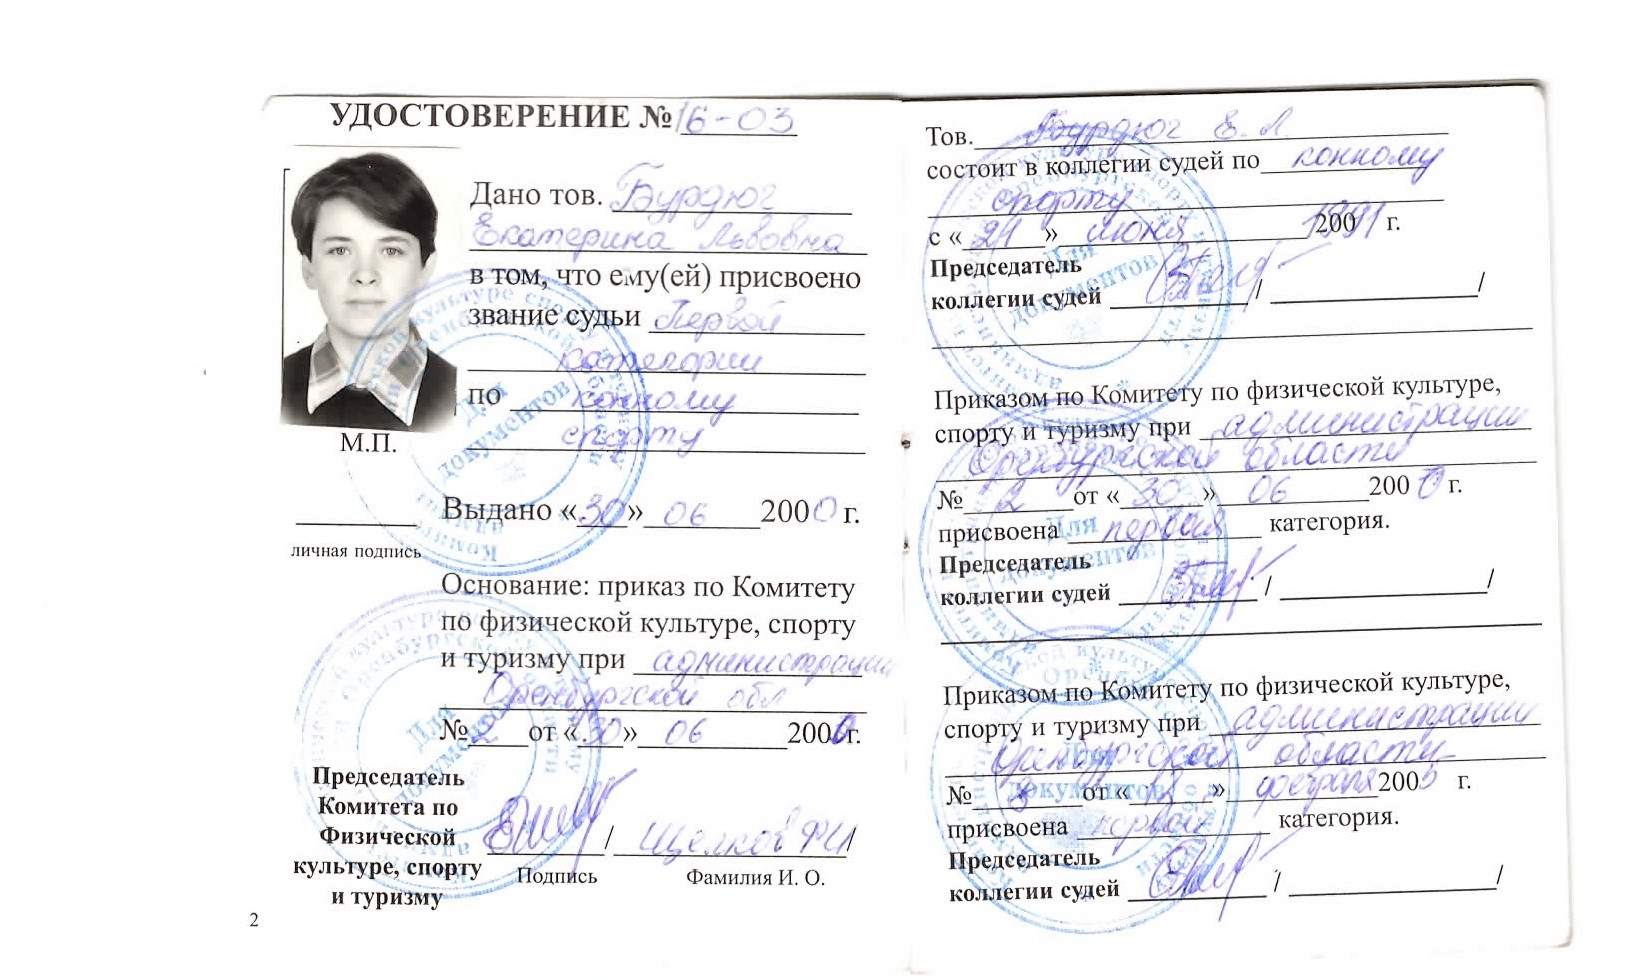 УДОСТОВЕРЕНИЕ № 16-03
Дано тов. Бурдюг
Екатерина Львовна
в том, что ему(ей) присвоено
звание судьи Первой
категории
по конному
спорту
М.П.
Выдано «30» 06 2000 г.
личная подпись
Основание: приказ по Комитету
по физической культуре, спорту
и туризму при администрации
Оренбургской обл
№ 2 от «30» 06 2000 г.
Председатель
Комитета по
Физической
культуре, спорту
и туризму
/ Щелков ФИ /
Подпись Фамилия И. О.
2
Тов. Бурдюг Е. Л
состоит в коллегии судей по конному
спорту
с «21» июня 1991 г.
Председатель
коллегии судей / /
Приказом по Комитету по физической культуре,
спорту и туризму при администрации
Оренбургской области
№ 2 от «30» 06 2000 г.
присвоена первая категория.
Председатель
коллегии судей / /
Приказом по Комитету по физической культуре,
спорту и туризму при администрации
Оренбургской области
№ 3 от « » февраля 2003 г.
присвоена первая категория.
Председатель
коллегии судей / /
Для
документов
Для
документов
Для
документов
Для
документов
документов